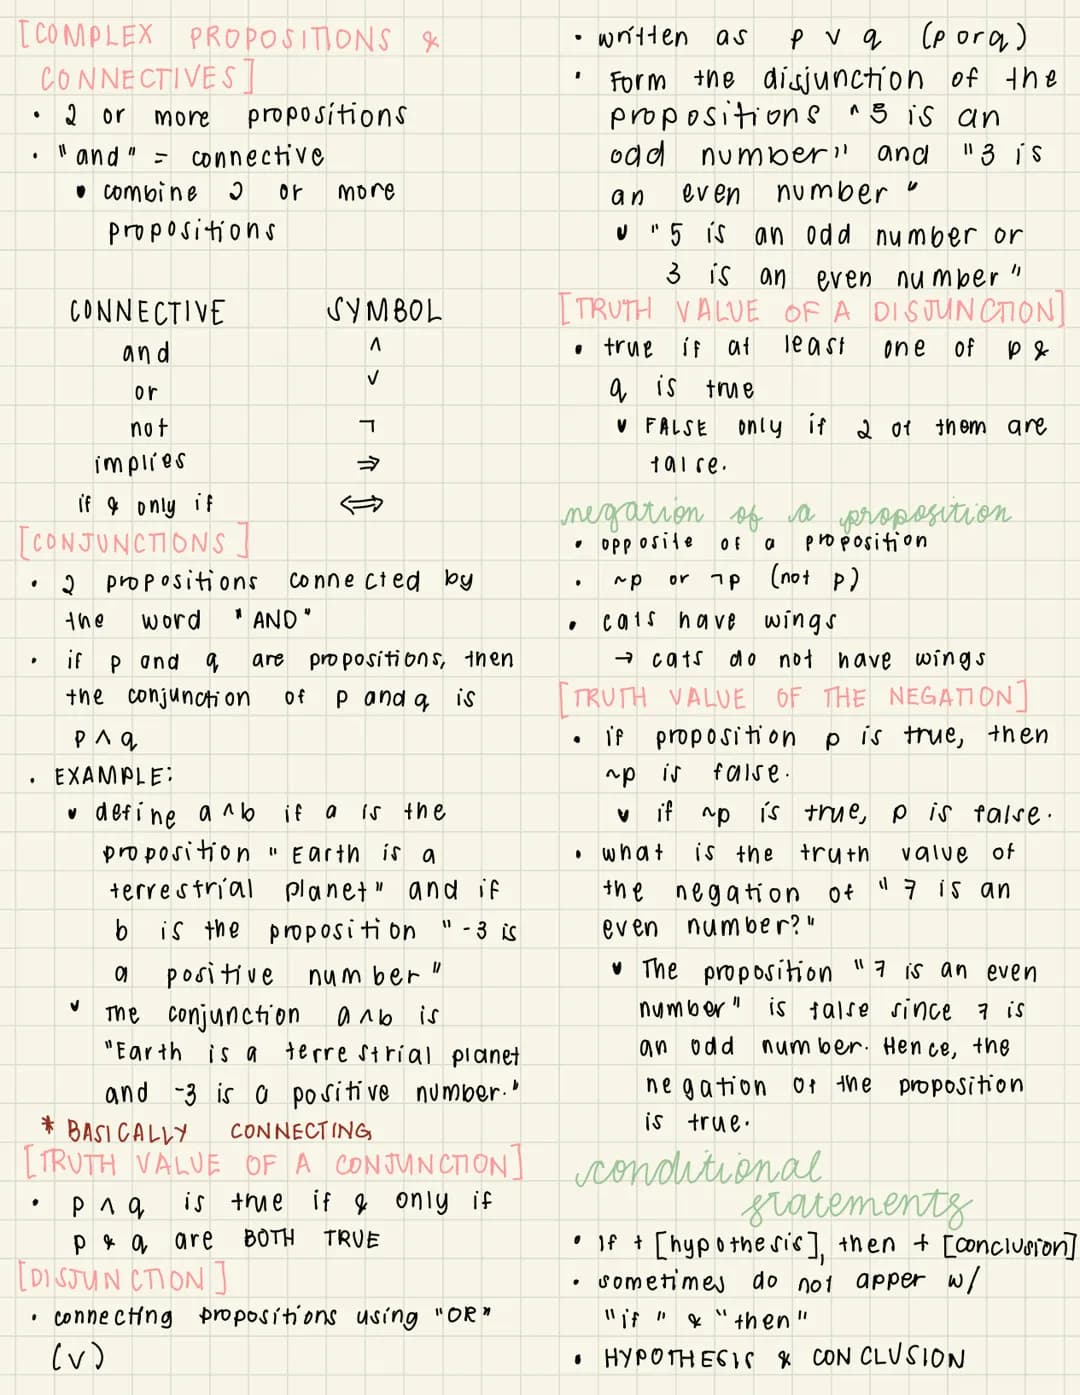 [COMPLEX PROPOSITIONS &
CONNECTIVES]
• 2 or more propositions
• "and" = connective
• combine 2 or more
propositions
CONNECTIVE SYMBOL
and ∧
or ∨
not ¬
implies ⇒
if & only if ⇔
[CONJUNCTIONS]
• 2 propositions connected by
the word "AND"
• if p and q are propositions, then
the conjunction of p and q is
p ∧ q
• EXAMPLE:
• define a ∧ b if a is the
proposition "Earth is a
terrestrial planet" and if
b is the proposition "-3 is
a positive number"
• The conjunction a ∧ b is
"Earth is a terrestrial planet
and -3 is a positive number."
* BASICALLY CONNECTING
[TRUTH VALUE OF A CONJUNCTION]
• p ∧ q is true if & only if
p & q are BOTH TRUE
[DISJUNCTION]
• connecting propositions using "OR"
(∨)
• written as p ∨ q (p or q)
• Form the disjunction of the
propositions "5 is an
odd number" and "3 is
an even number"
• "5 is an odd number or
3 is an even number"
[TRUTH VALUE OF A DISJUNCTION]
• true if at least one of p &
q is true
• FALSE only if 2 of them are
false.
negation of a proposition
• opposite of a proposition
• ~p or ¬p (not p)
• cats have wings
→ cats do not have wings
[TRUTH VALUE OF THE NEGATION]
• if proposition p is true, then
~p is false.
• if ~p is true, p is false.
• what is the truth value of
the negation of "7 is an
even number?"
• The proposition "7 is an even
number" is false since 7 is
an odd number. Hence, the
negation of the proposition
is true.
conditional
statements
• If + [hypothesis], then + [conclusion]
• sometimes do not apper w/
"if" & "then"
• HYPOTHESIS & CONCLUSION